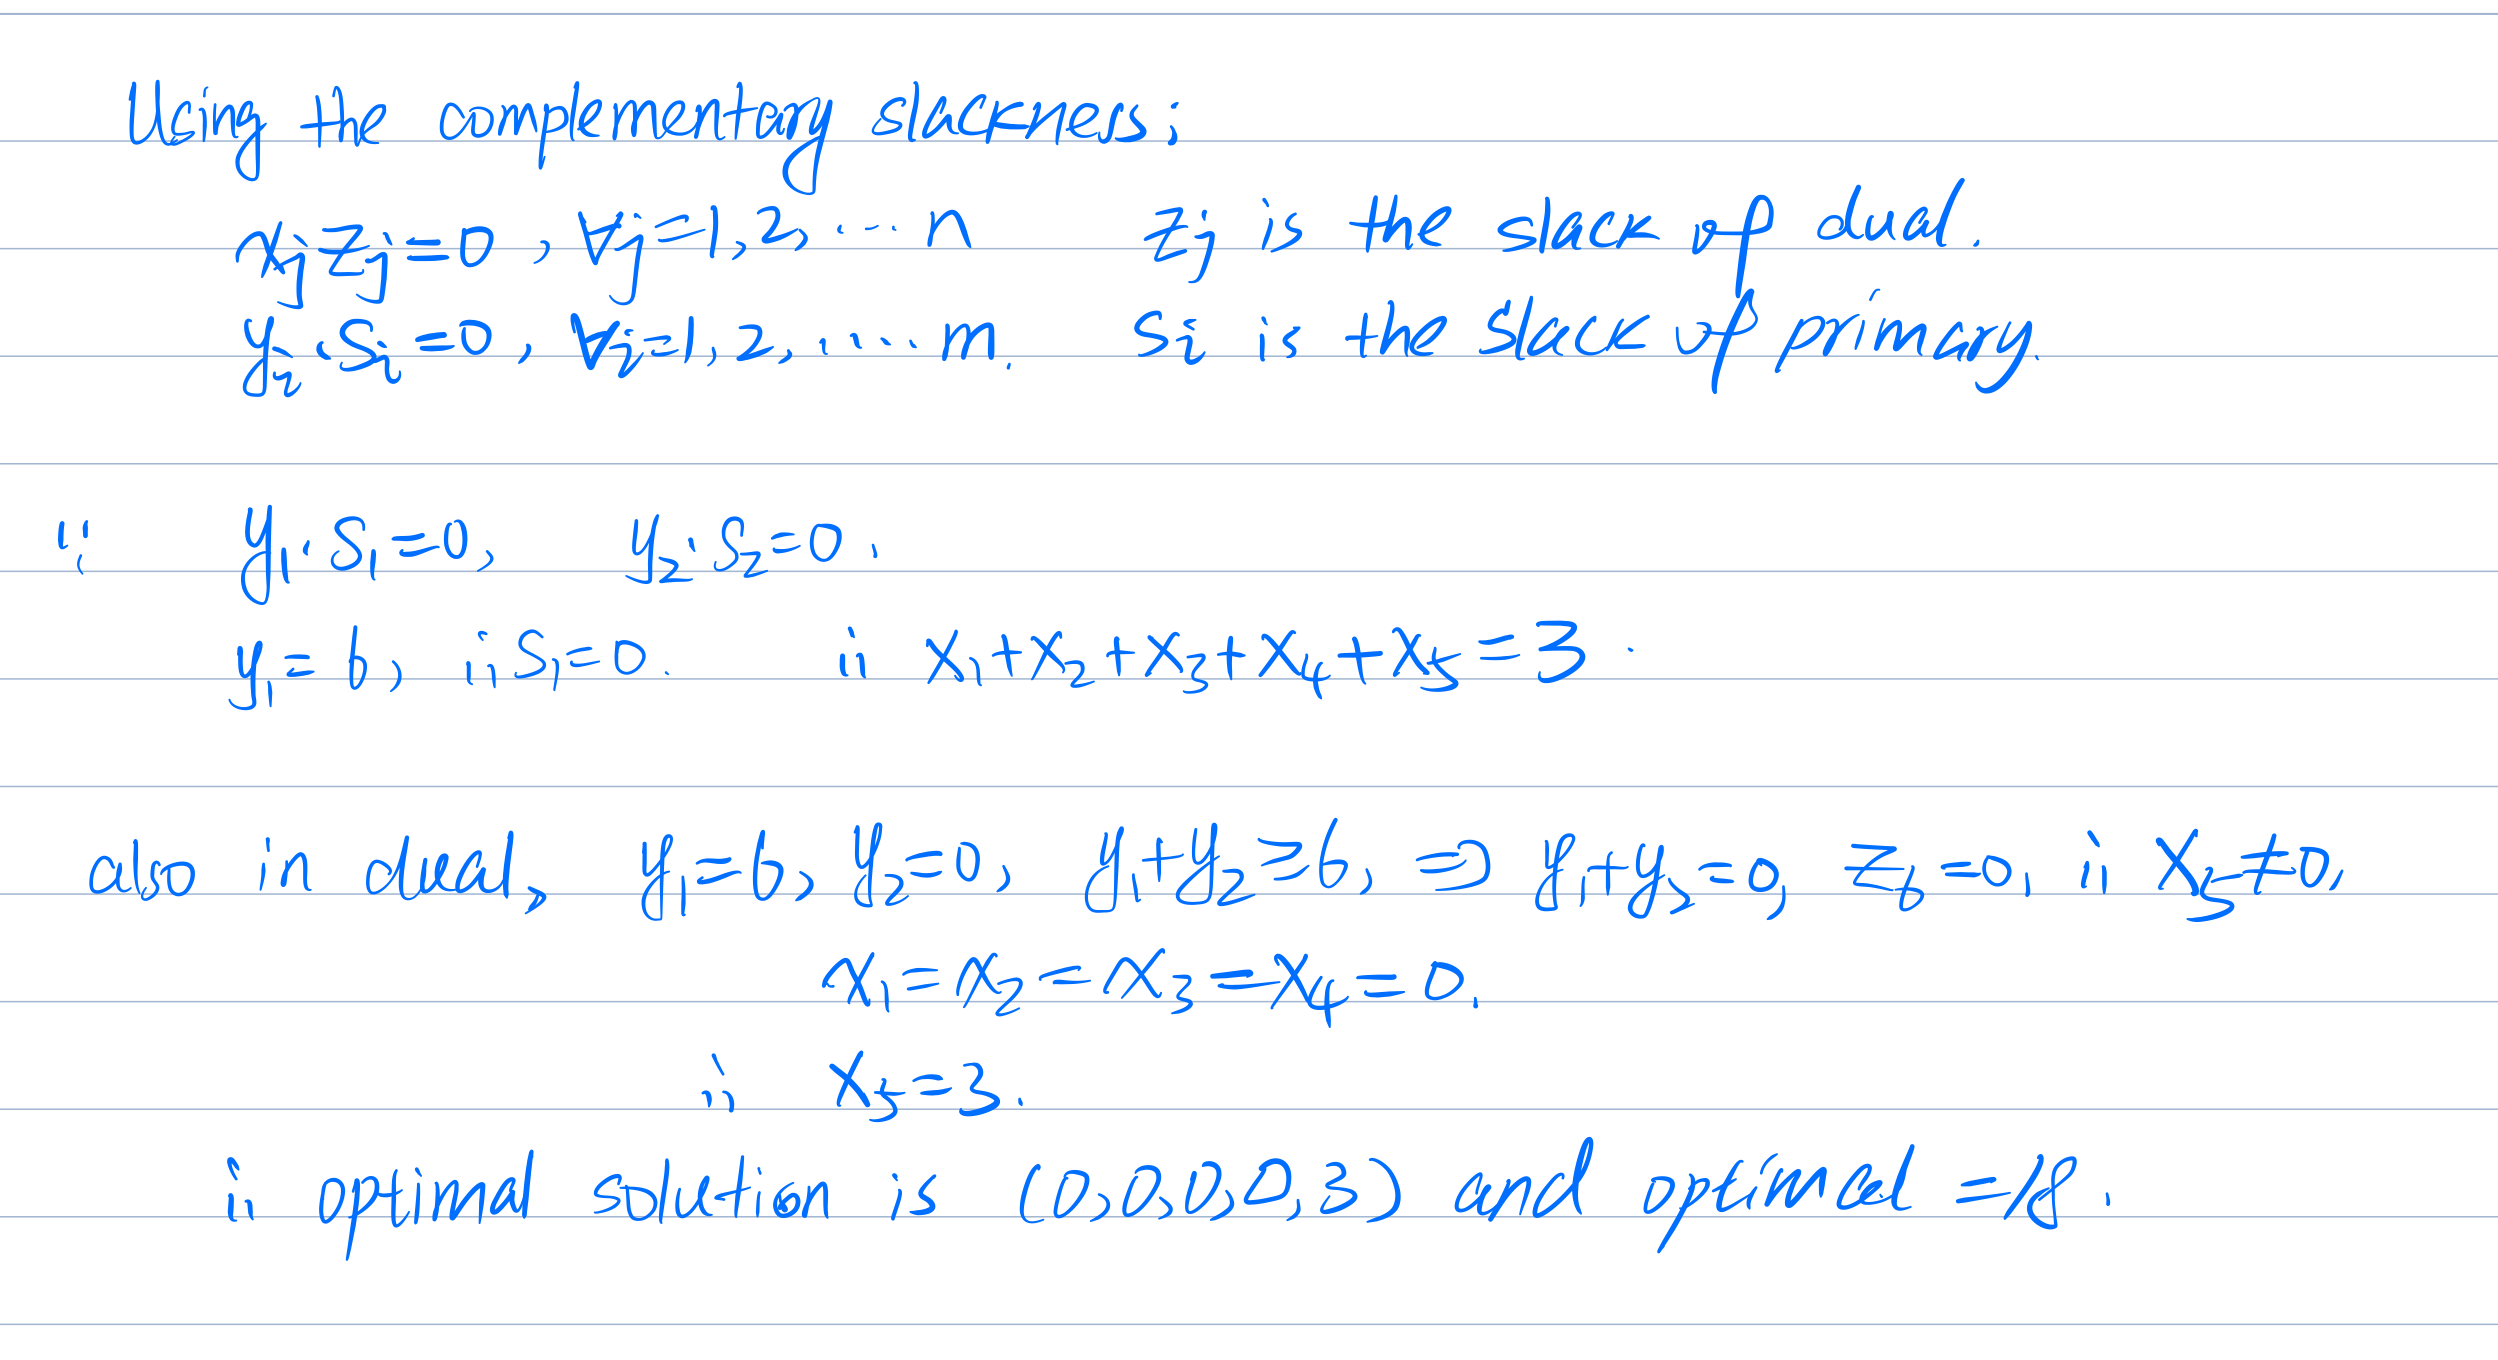 Using the complementary slackness:
x_j z_j = 0, ∀j=1,2,...n z_j is the slack of dual.
y_i s_i = 0, ∀i=1,2...m. s_i is the slack of primary.
∵ y_1·s_1=0, y_2·s_2=0.
y_1=6, ∴ s_1=0. ∴ x_1+x_2+x_3+x_4+x_5=3.
also in dual, y_1=6, y_2=0, y_1+y_2=6 ⇒ y_1+y_2=0, z_5=0. ∴ x_5≠0,
x_1=x_2=x_3=x_4=0.
∴ x_5=3.
∴ optimal solution is (0,0,0,0,3) and optimal=18.